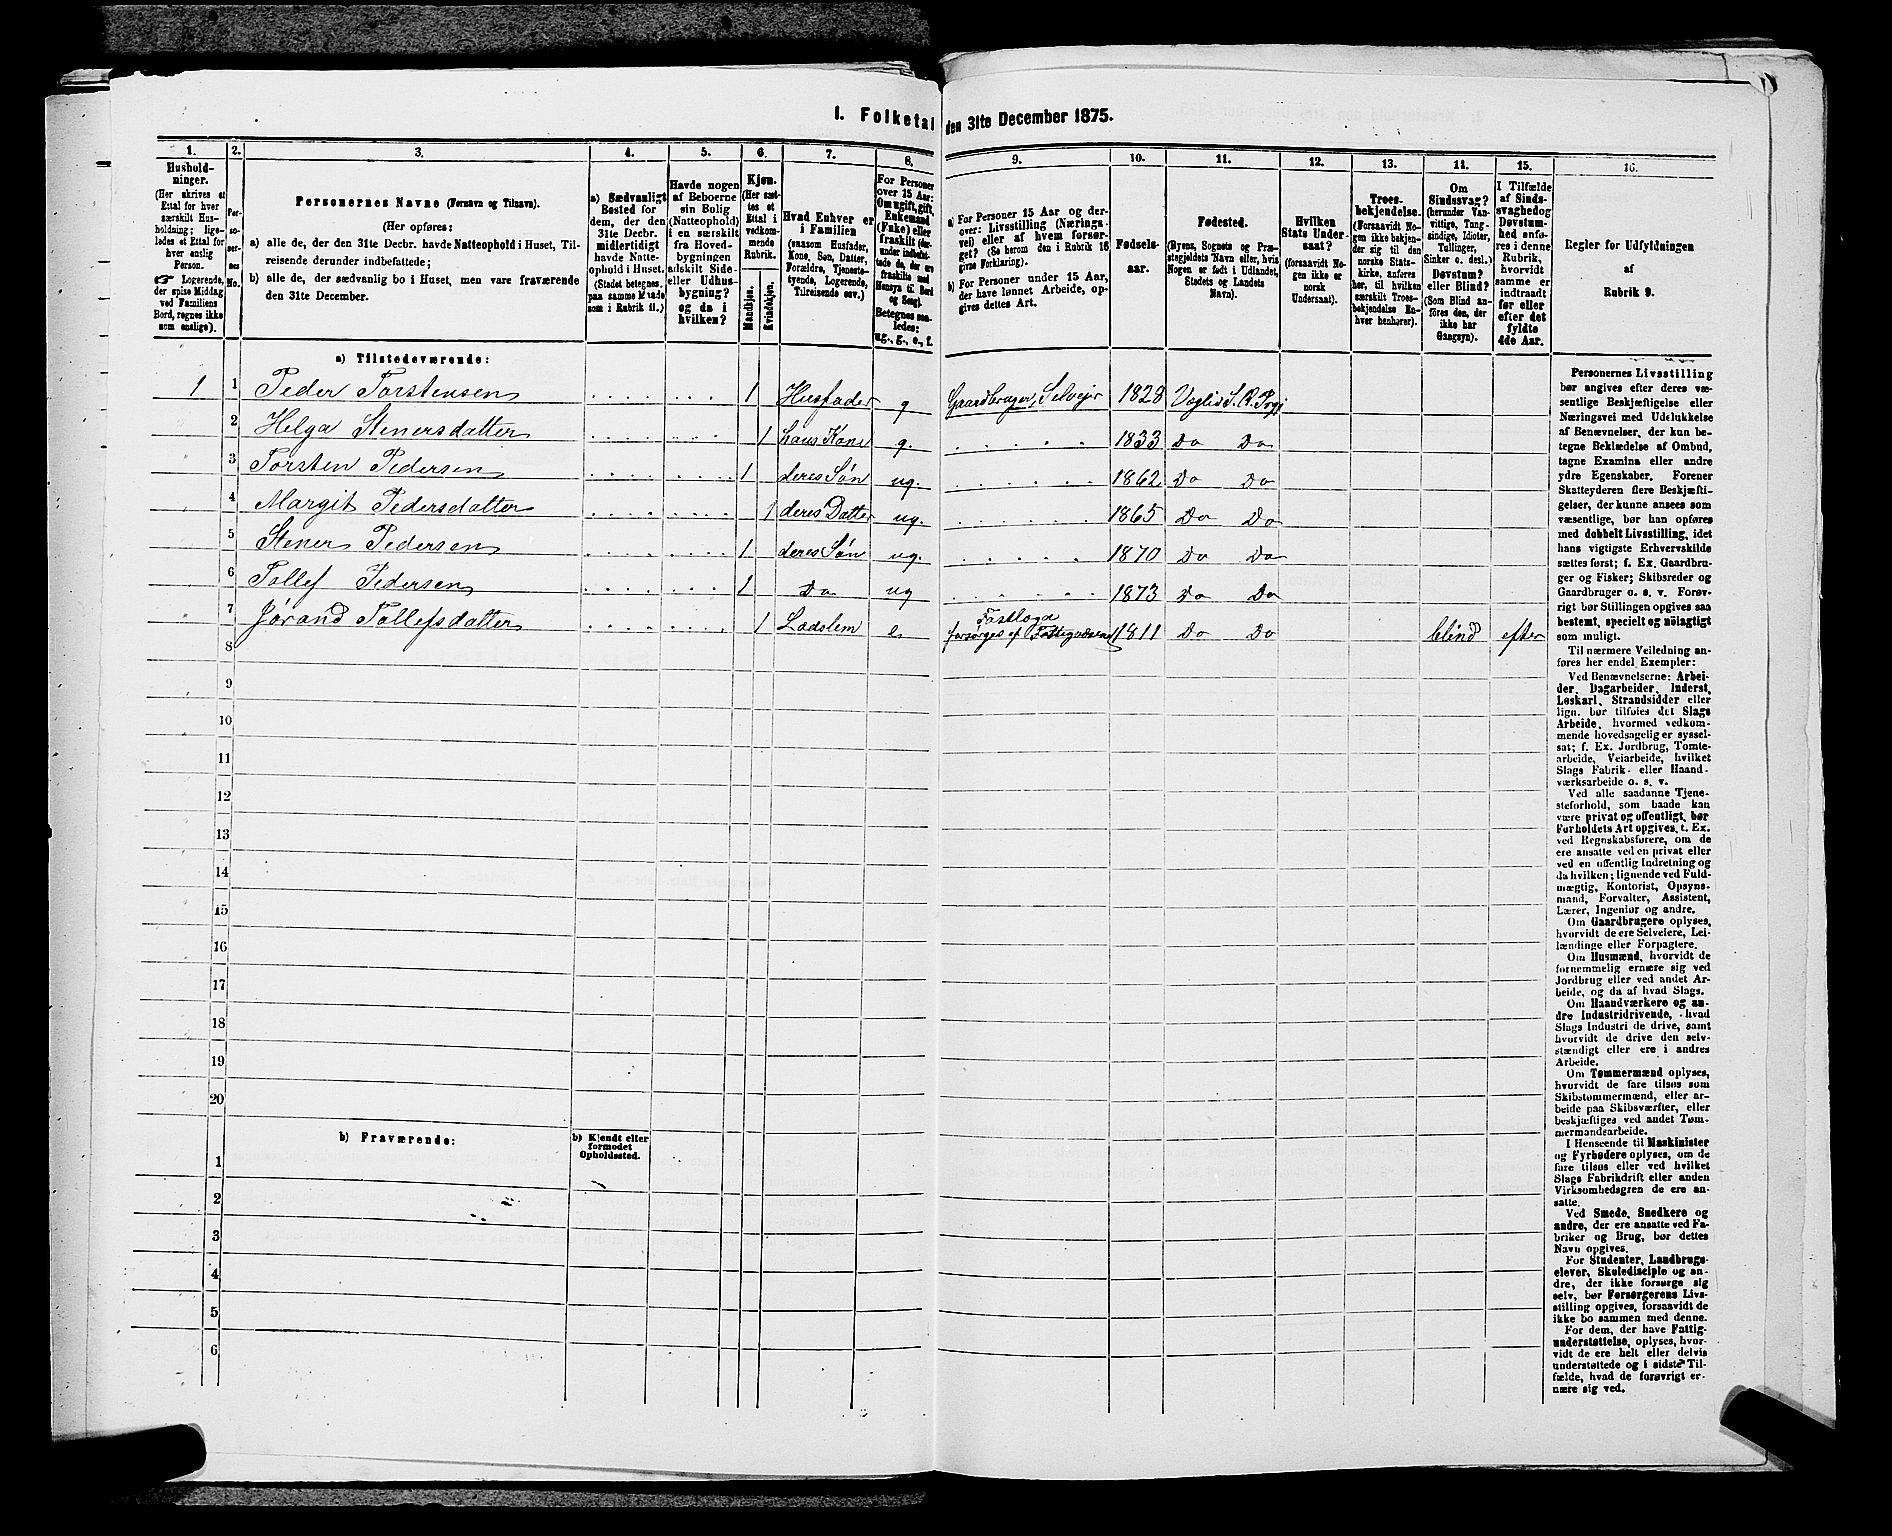 1. Folketal den 31te December 1875.
1. 2. 3. 4. 5. 6. 7. 8. 9. 10. 11. 12. 13. 14. 15. 16.
Hushold-
ninger.
(Her skrives et
Ettal for hver
særskilt Hus-
holdning; lige-
ledes et Ettal for
hver enslig
Person.
☞ Logerende,
der spise Middag
ved Familiens
Bord, regnes ikke
som enslige).
Per-
so-
ner-
nes
No.
Personernes Navne (Fornavn og Tilnavn).
(Her opføres:
a) alle de, der den 31te Decbr. havde Natteophold i Huset, Til-
reisende derunder indbefattede;
b) alle de, der sædvanlig bo i Huset, men vare fraværende
den 31te December.
a) Sædvanligt
Bosted for
dem, der den
31te Decbr.
midlertidigt
havde Natte-
ophold i Huset.
(Stedet betegnes
paa samme Maade
som i Rubrik 11.)
Havde nogen
af Beboerne
sin Bolig
(Natteophold)
i en særskilt
fra Hoved-
bygningen
adskilt Side-
eller Udhus-
bygning?
og da i
hvilken?
Kjøn.
(Her sæt-
tes et
Ettal i
vedkom-
mende
Rubrik.
Mandkjøn.
Kvindekjøn.
Hvad Enhver er
i Familien
(saasom Husfader,
Kone, Søn, Datter,
Forældre, Tjeneste-
tyende, Logerende,
Tilreisende osv.)
For Personer
over 15 Aar:
Om ugift, gift,
Enkemand
(Enke) eller
fraskilt (der-
under indbefat-
tede de, der ere
fraskilte med
Hensyn til Bord
og Seng).
Betegnes saa-
ledes:
ug., g., e., f.
a) For Personer 15 Aar og der-
over: Livsstilling (Nærings-
vei) eller af hvem forsør-
get? (Se herom den i Rubrik 16
givne Forklaring).
b) For Personer under 15 Aar,
der have lønnet Arbeide, op-
gives dettes Art.
Fødsels-
aar.
Fødested.
(Byens, Sognets og Præ-
stegjeldets Navn eller, hvis
Nogen er født i Udlandet,
Stedets og Landets
Navn).
Hvilken
Stats Under-
saat?
(forsaavidt No-
gen ikke er
norsk
Undersaat).
Troes-
bekjendelse.
(Forsaavidt No-
gen ikke bekjen-
der sig til den
norske Stats-
kirke, anføres
her, til hvilken
særskilt Troes-
bekjendelse En-
hver henhører).
Om
Sindssvag?
(herunder Van-
vittige, Tung-
sindige, Idioter,
Tullinger,
Sinker o. desl.)
Døvstum?
eller Blind?
(Som Blind an-
føres den, der
ikke har
Gangsyn).
I Tilfælde
af Sinds-
svaghedog
Døvstum-
hed anfø-
res i denne
Rubrik,
hvorvidt
samme er
indtraadt
før eller
efter det
fyldte
4de Aar.
Regler for Udfyldningen
af
Rubrik 9.
a) Tilstedeværende:
1 1 Peder Torstensen 1 Husfader g Gaardbruger, Selvejer 1828
2 Helga Stenersdatter 1 hans Kone g. 1833 Do Do
3 Torsten Pedersen 1 deres Søn ug. 1862 Do Do
4 Margit Pedersdatter 1 deres Datter ug. 1865 Do Do
5 Stener Pedersen 1 deres Søn ug. 1870 Do Do
6 Tollef Pedersen 1 Do ug 1873 Do Do
7 Jørand Tollefsdatter 1 Lodslem e forsørges af Fattigvæsenet 1811 Do Do blind efter
8
9
10
11
12
13
14
15
16
17
18
19
20
b) Fraværende:
b) Kjendt eller
formodet
Opholdssted.
1
2
3
4
5
6
Personernes Livsstilling
bør angives efter deres væ-
sentlige Beskjæftigelse eller
Næringsvei med Udelukkelse
af Benævnelser, der kun be-
tegne Beklædelse af Ombud,
tagne Examina eller andre
ydre Egenskaber. Forener
Skatteyderen flere Beskjæfti-
gelser, der kunne ansees som
væsentlige, bør han opføres
med dobbelt Livsstilling, idet
hans vigtigste Erhvervskilde
sættes først; f. Ex. Gaardbru-
ger og Fisker; Skibsreder og
Gaardbruger o. s. v. Forøv-
rigt bør Stillingen opgives saa
bestemt, specielt og nöiagtigt
som muligt.
Til nærmere Veiledning an-
føres her endel Exempler:
Ved Benævnelserne: Arbei-
der, Dagarbeider, Inderst,
Løskarl, Strandsidder eller
lign. bør tilføies det Slags
Arbeide, hvormed vedkom-
mende hovedsagelig er syssel-
sat; f. Ex. Jordbrug, Tomte-
arbeide, Veiarbeide, hvilket
Slags Fabrik- eller Haand-
værksarbeide o. s. v.
Ved alle saadanne Tjene-
steforhold, som baade kan
være privat og offentligt, bør
Forholdets Art opgives, t. Ex.
ved Regnskabsførere, om de
ere ansatte ved en privat eller
ved en offentlig Indretning og
da hvilken; lignende ved Fuld-
mægtig, Kontorist, Opsyns-
mand, Forvalter, Assistent,
Lærer, Ingeniør og andre.
Om Gaardbrugere oplyses,
hvorvidt de ere Selveiere, Lei-
lændinge eller Forpagtere.
Om Husmænd, hvorvidt de
fornemmelig ernære sig ved
Jordbrug eller ved andet Ar-
beide, og da af hvad Slags.
Om Haandværkere og an-
dre Industridrivende, hvad
Slags Industri de drive, samt
hvorvidt de drive den selv-
stændigt eller ere i andres
Arbeide.
Om Tømmermænd oplyses,
hvorvidt de fare tilsøs som
Skibstømmermænd, eller ar-
beide paa Skibsværfter, eller
beskjæftiges ved andet Tøm-
mermandsarbeide.
I Henseende til Maskinister
og Fyrbødere oplyses, om de
fare tilsøs eller ved hvilket
Slags Fabrikdrift eller anden
Virksomhedsgren de ere an-
satte.
Ved Smede, Snedkere og
andre, der ere ansatte ved Fa-
briker og Brug, bør dettes
Navn opgives.
For Studenter, Landbrugs-
elever, Skoledisciple og an-
dre, der ikke forsørge sig
selv, bør Forsørgerens Livs-
stilling opgives, forsaavidt de
ikke bo sammen med denne.
For dem, der have Fattig-
understøttelse, oplyses, hvor-
vidt de ere helt eller delvis
understøttede og i sidste Til-
fælde, hvad de forøvrigt er-
nære sig ved.